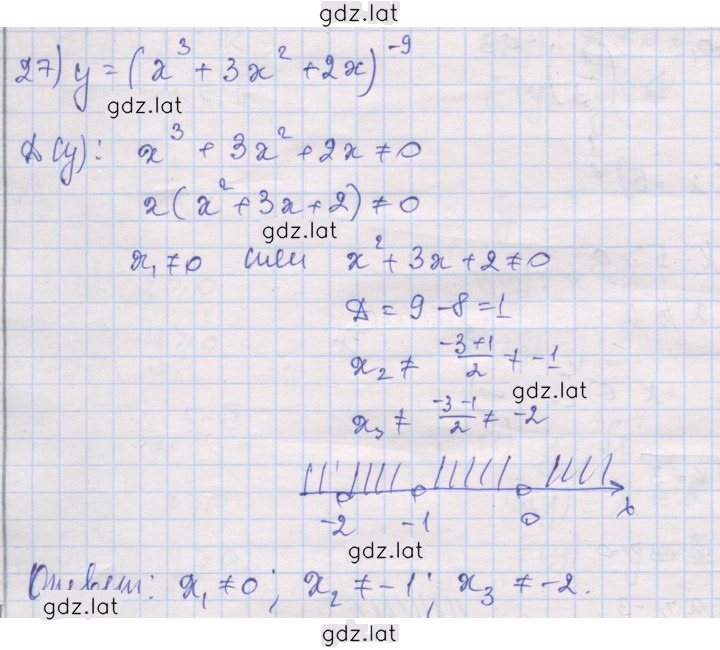 gdz.lat
27) y = (x³ + 3x² + 2x)⁻⁹
gdz.lat
D(y): x³ + 3x² + 2x ≠ 0
x(x² + 3x + 2) ≠ 0
gdz.lat
x₁ ≠ 0 или x² + 3x + 2 ≠ 0
D = 9 - 8 = 1
x₂ ≠ (-3+1)/2 ≠ -1
gdz.lat
x₃ ≠ (-3-1)/2 ≠ -2
-2 -1 0 x
gdz.lat
Ответ: x₁ ≠ 0; x₂ ≠ -1; x₃ ≠ -2.
gdz.lat
gdz.lat